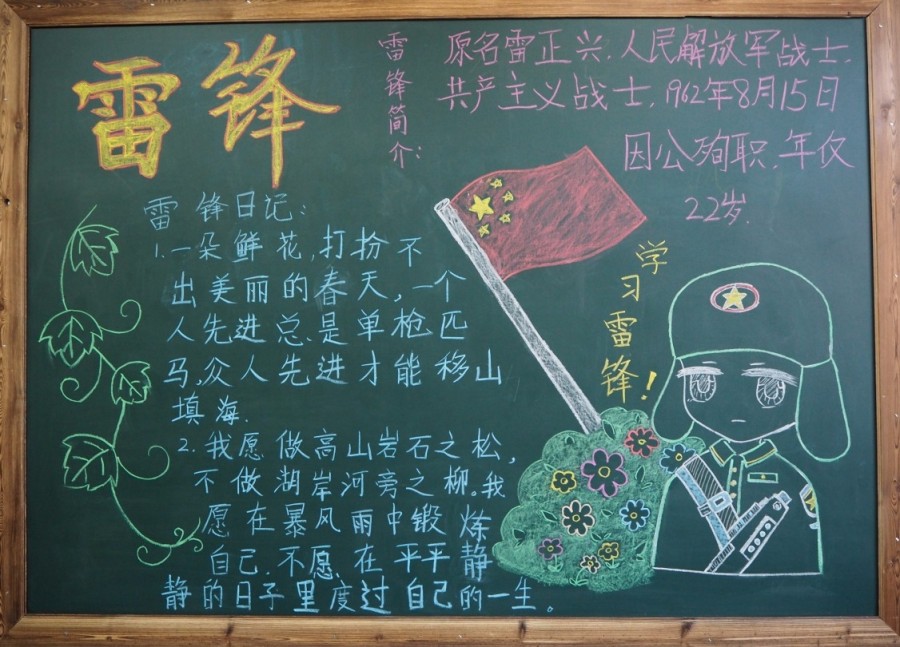 雷锋
雷锋简介:
原名雷正兴.人民解放军战士.
共产主义战士.1962年8月15日
因公殉职.年仅
22岁.
雷锋日记:
1.一朵鲜花,打扮不
出美丽的春天,一个
人先进总是单枪匹
马,众人先进才能移山
填海.
2.我愿做高山岩石之松,
不做湖岸河旁之柳。我
愿在暴风雨中锻炼
自己.不愿在平平静
静的日子里度过自己的一生。
学习雷锋!